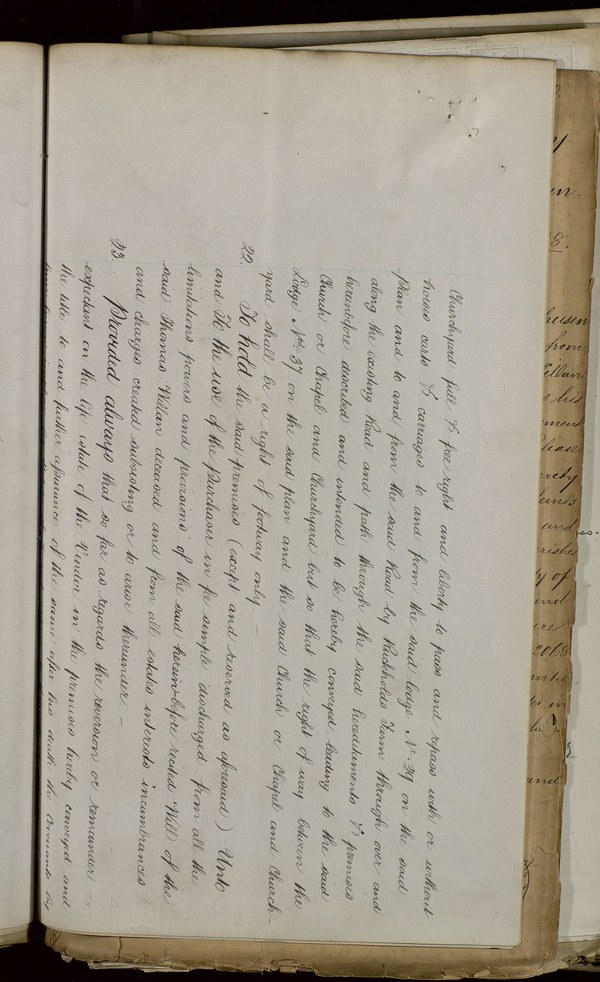 Churchyard full & free right and liberty to pass and repass with or without
horses carts & carriages to and from the said lodge No. 29 on the said
Plan and to and from the said Road by Ruckholds Farm through over and
along the existing Road and path through the said hereditaments & premises
hereinbefore described and intended to be hereby conveyed leading to the said
Church or Chapel and Churchyard but so that the right of way between the
Lodge No. 37 on the said plan and the said Church or Chapel and Church-
yard shall be a right of footway only —
22. To hold the said premises (except and reserved as aforesaid) Unto
and To the use of the Purchaser in fee simple discharged from all the
limitations powers and provisions of the said herein-before recited Will of the
said Thomas deceased and from all estates interests incumbrances
and charges created subsisting or to arise thereunder. —
23. Provided always that so far as regards the reversion or remainder —
expectant on the life estate of the Vendor in the premises hereby conveyed and
the title to and further assurance of the same after his death the Covenants by